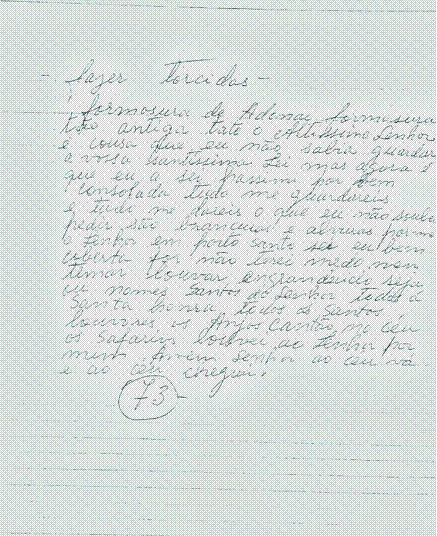 - fazer torcidas -
formosura de Adonai, formosura
tão antiga tate o Altíssimo Senhor
e cousa que eu não sabia guardar
a vossa Santíssima Lei mas agora é
que eu a sei hassem por bem
consolada tudo me guardareis
e tudo me dareis o que eu não souber
pedir são brancuras e alvuras
o Senhor em porto santo sei eu bem
uberta for não terei medo, nem
temor louvar engrandecido seja
os nomes Santos do Senhor todos a
Santa honra, todos os Santos
louvores, os Anjos cantão, no céu
os Safarins louvei ao Senhor por
mim, Amem Senhor ao céu vá
e ao céu chegui.
73-